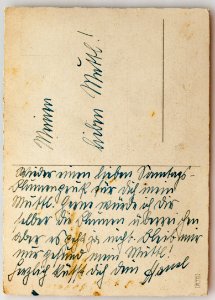 Meinem
lieben Muttl!
Wieder einen lieben Sonntags-
Blumengruß für Dich mein
Muttl! Gerne würde ich dir
selber die Blumen überreichen
aber es geht ja nicht. Bleib mir
nur gesund mein Muttl!
Herzlich küßt dich dein